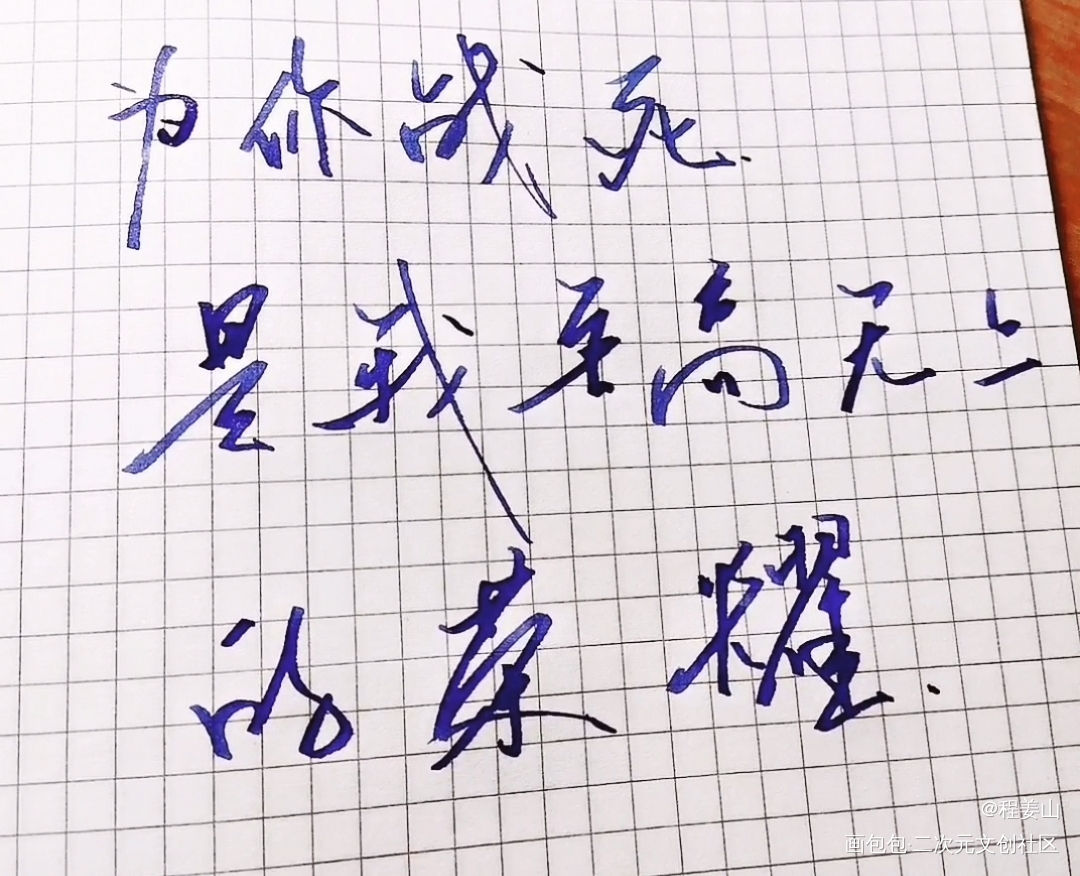 为你战死.
是我至高无上
的荣耀.
@程姜山
画包包·二次元文创社区